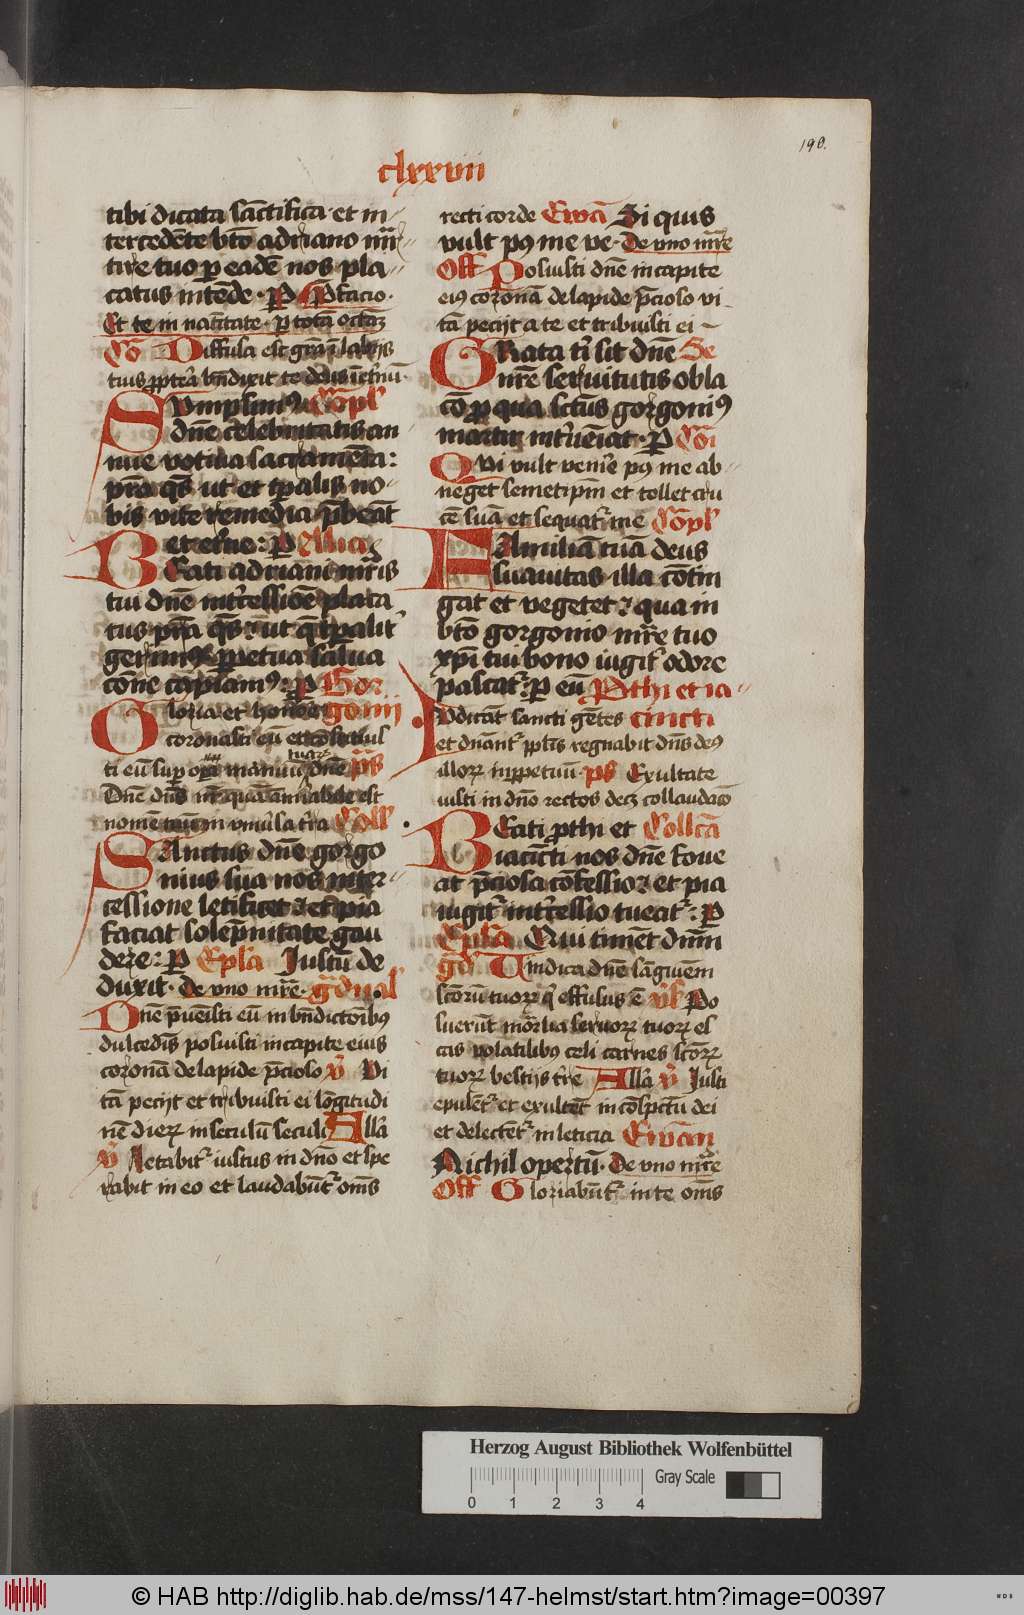 clxxviii
190.
tibi dicata sāctifica et in
tercedēte bto adriano mr̄
tire tuo p eadē nos pla
catus intēde · P Pfacio ·
Et te in nat̄itate · p totā octaū
Cō Diffusa est gr̄a ī labijs
tuis ꝓpt̄ea bn̄dixit te deus ī et̄nū
Sumpsim⁹ Cōpl
dn̄e celebritatis an
nue votiua sacramēta :
pr̄a q̄s ut et tp̄alis no
bis vite remedia p̄beāt
et et̄ne : P Ellīa
Beati adriani mr̄is
tui dn̄e int̄cessiōe placa
tus pr̄a q̄s ut q̄ tp̄alit̄
gerim⁹ ꝑpetua salua
cōne capiam⁹ : P Gor
Gloria et honōe gonij
coronasti eū et cōstitui
ti eū sup opa manuū tuaꝝ dn̄e p̄s
Dn̄e dn̄s nr̄ quā am̄irabile est
nomē tuū in vniu̅sa t̄ra Coll̄
Sanctus dn̄e gorgo
nius sua nos inter
cessione letificet et pia
faciat solēpnitate gau
dere : P Epl̄a Iustū de
duxit · de vno mr̄e · gr̄dual
Dn̄e p̄uenisti eū in bn̄dictōib⁹
dulcedīs posuisti in capite eius
coronā de lapide p̄cioso v̄ Vi
tā pecijt et tribuisti ei lōgitudi
nē dieꝝ in seculū seculi All̄a
v̄ Letabit̄ iustus in dn̄o et spe
rabit in eo et laudabūt̄ om̄s
recti corde Ewā Si quis
vult p⁹ me ve · de vno mr̄e
Off Posuisti dn̄e in capite
ei⁹ coronā de lapide p̄cioso vi
tā pecijt a te et tribuisti ei
Grata t̄i sit dn̄e Se
nr̄e seruitutis obla
cō p qua sctūs gorgoni⁹
martir int̄ueniat · P Cōi
Qui vult venire p⁹ me ab
neget semetip̄m et tollet cru
cē suā et sequat̄ me Cōpl
Familiā tuā deus
suauitas illa cōtin
gat et vegetet qua in
bto gorgonio mr̄e tuo
xp̄i tui bono iugit̄ odore
pascat̄ · P eū Pthi et ia
Iudicāt sancti gētes cincti
et dn̄ant̄ pplīs regnabit dn̄s de⁹
illoꝝ inꝑpetuū · ps Exultate
iusti in dn̄o rectos decꝫ collaudaō
Beati ꝓthi et Collcā
iacīcti nos dn̄e foue
at p̄ciosa cōfessio et pia
iugit̄ int̄cessio tueat̄ : P
Epl̄a Qui timēt dn̄m
gd̄ Vindica dn̄e sāguinem
sctōrū tuoꝝ q̄ effusus ē v̄s Po
suerūt mōrlia seruoꝝ tuoꝝ es
cas volatilibus celi carnes sctōꝝ
tuoꝝ bestijs t̄re All̄a v̄ Iusti
epulēt̄ et exultēt in cōspctū dei
et delectēt̄ in leticia Ewān
Nichil opertū · de vno mr̄e
Off Gloriabūt̄ in te om̄s
Herzog August Bibliothek Wolfenbüttel
Gray Scale
0 1 2 3 4
© HAB http://diglib.hab.de/mss/147-helmst/start.htm?image=00397